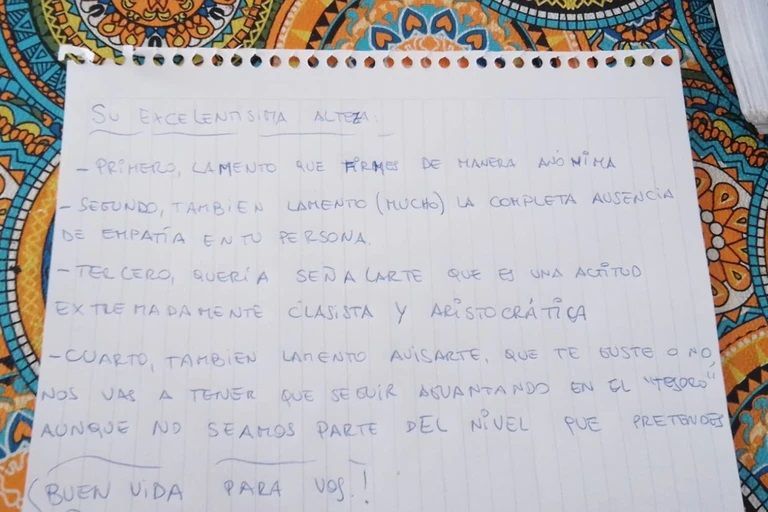 SU EXCELENTISIMA ALTEZA:
- PRIMERO, LAMENTO QUE FIRMES DE MANERA ANÓNIMA
- SEGUNDO, TAMBIEN LAMENTO (MUCHO) LA COMPLETA AUSENCIA
DE EMPATÍA EN TU PERSONA.
- TERCERO, QUERÍA SEÑALARTE QUE ES UNA ACTITUD
EXTREMADAMENTE CLASISTA Y ARISTOCRÁTICA
- CUARTO, TAMBIEN LAMENTO AVISARTE, QUE TE GUSTE O NO,
NOS VAS A TENER QUE SEGUIR AGUANTANDO EN EL "TESORO"
AUNQUE NO SEAMOS PARTE DEL NIVEL QUE PRETENDES
(BUEN VIDA PARA VOS!